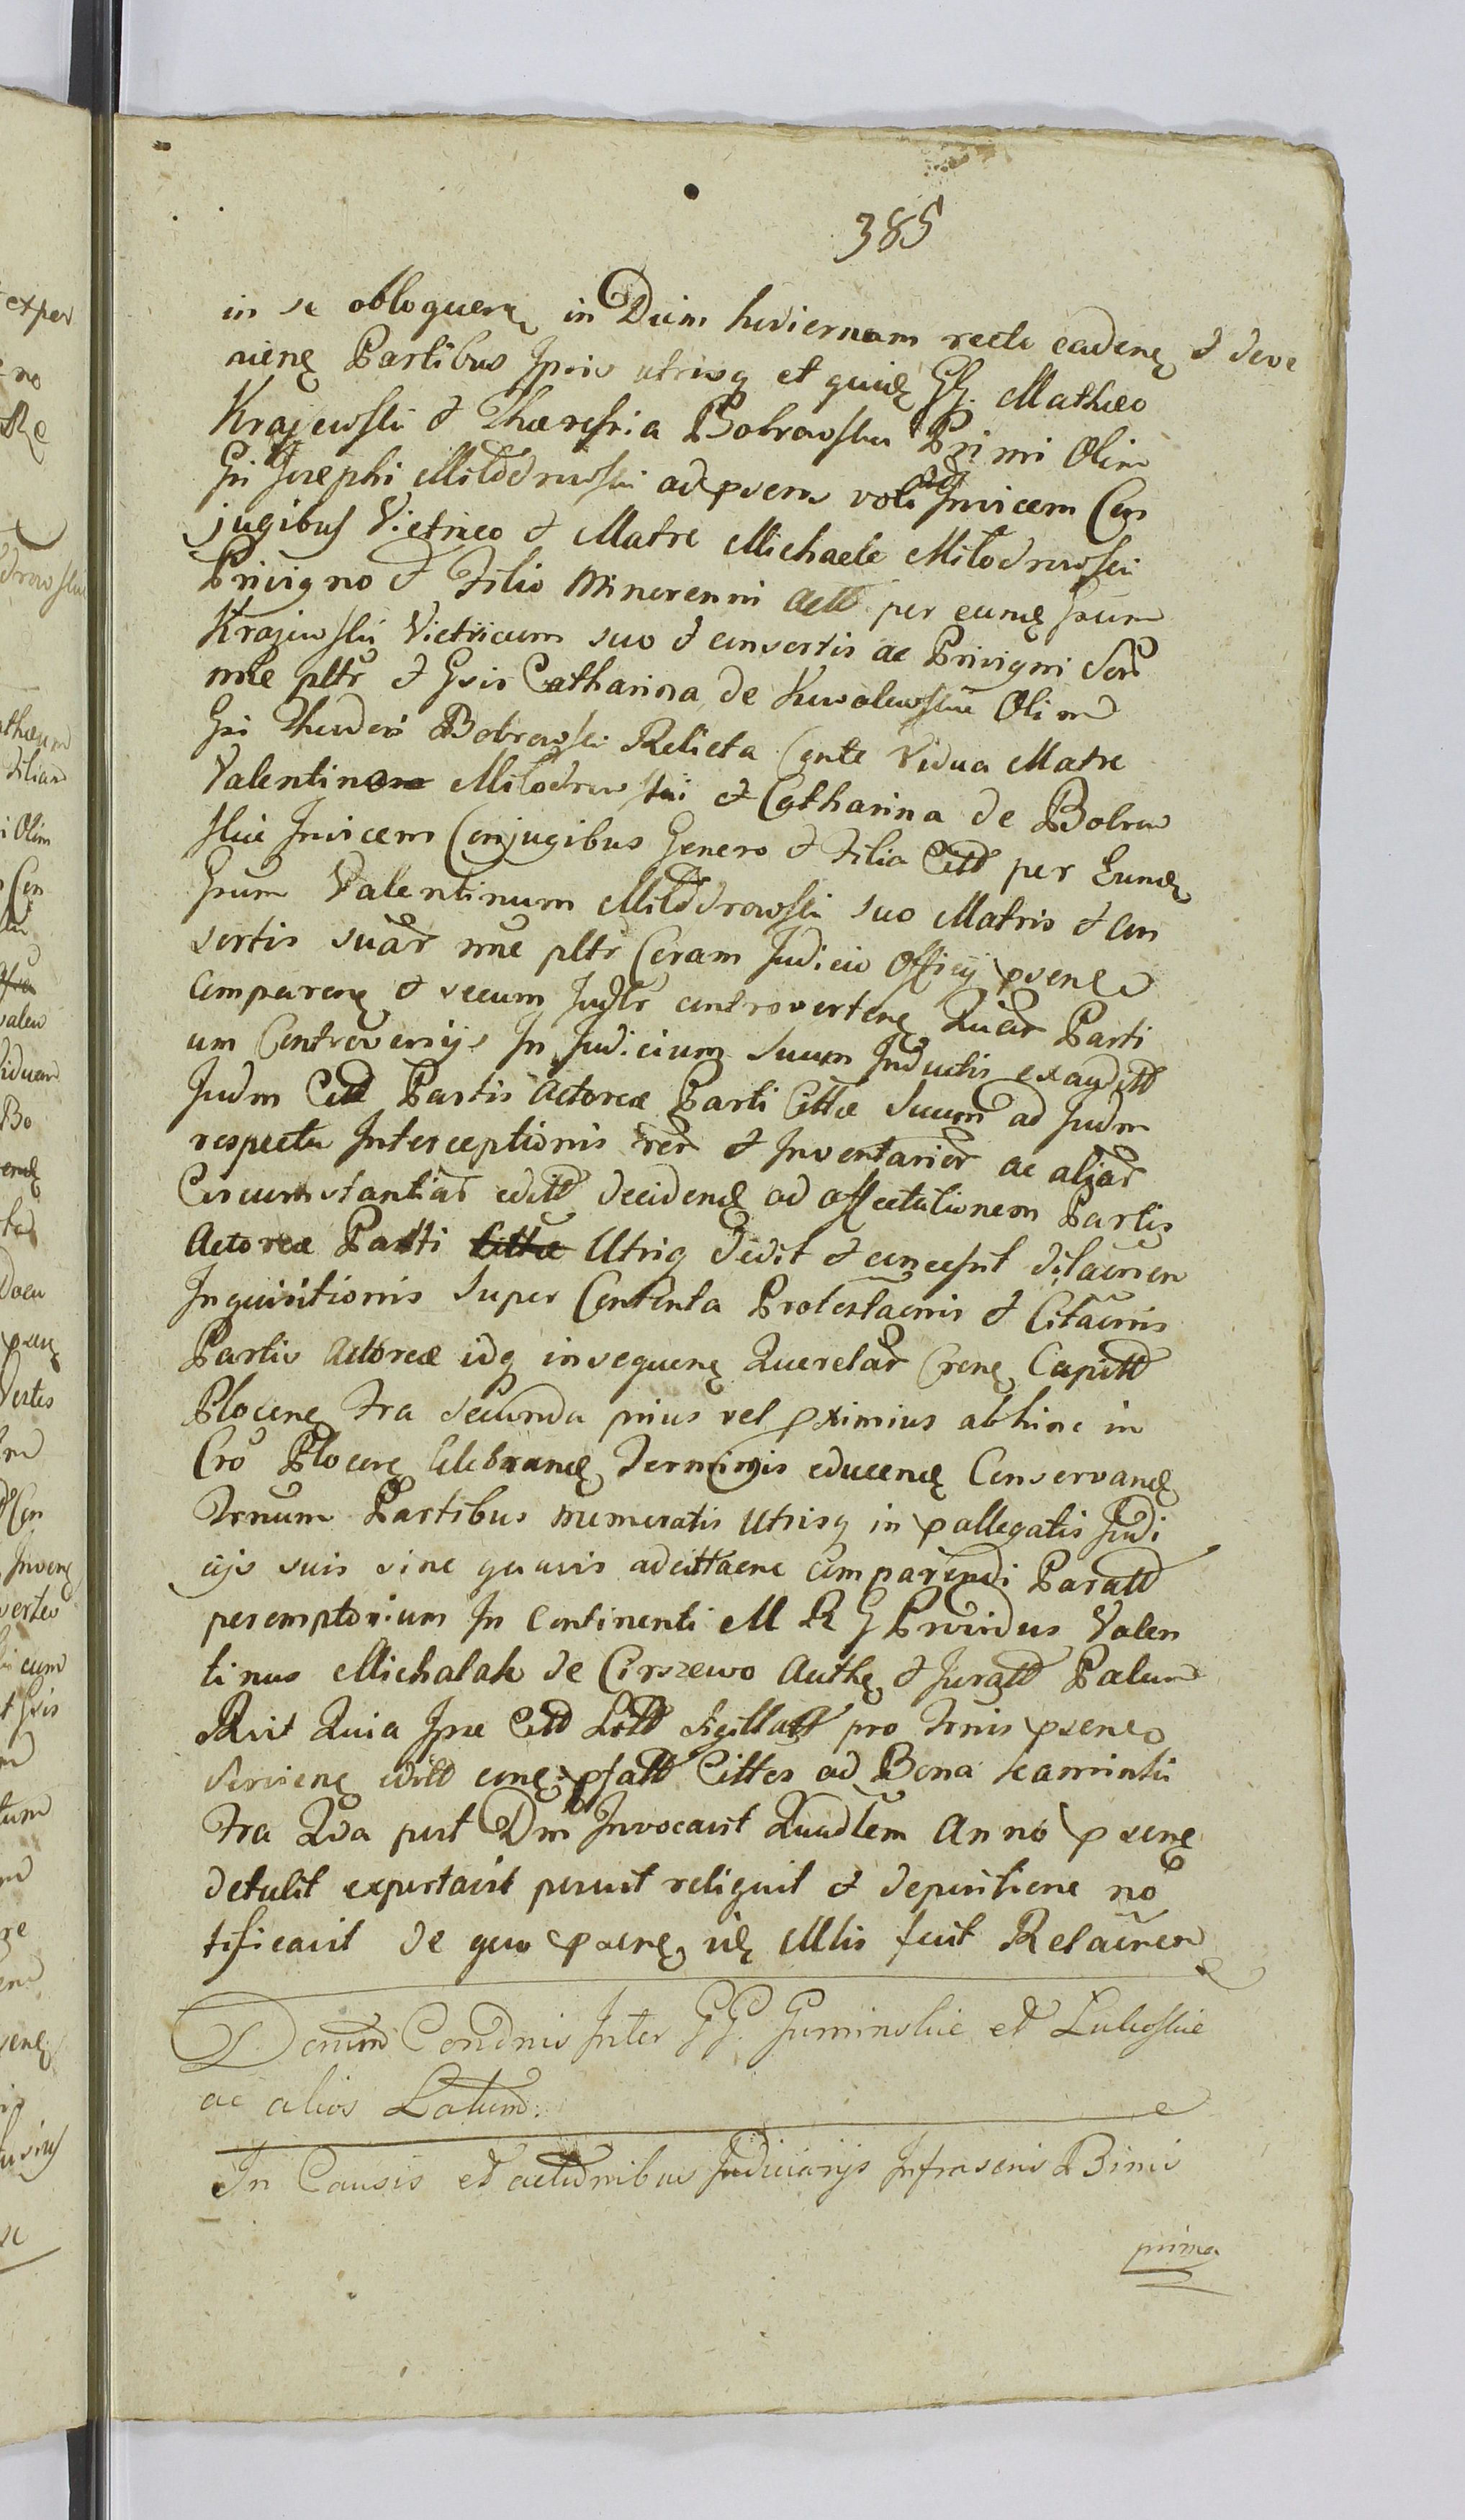 385
in se obloquenę in Diem hodiernam recte cadenę & deve
nienę Partibus Ipsis utrisq et quidę GG. Matheo
Krajewski & Theressia Bobrowska Primi Olim
Gsi Josephi Miłodrowski ad psens voti Invicem Con
jugibus Vietrico & Matre Michaele Miłodrowski
Privigno & Filio Minorenni Actt per eundę Gsum
Krajewski Vietricum suo & consortis ac Privigni
nne pltr & Gsis Catharina de Kowalewskie Olim
Gsi Theodori Bobrowski Relicta Conte Vidua Matre
Valentino Miłodrowski & Catharina de Bobrow
skie Invicem Conjugibus Genero & Filia Citt per Eundę
Gsum Valentinum Miłodrowski suo Matris & con
sortis suar nne pltr Coram Judicio Officij psenę
Comparenę & secum Judltr controvertenę Quar Parti
um Controversijs In Judicium suum Inductis exaudtt
Judm Citt Partis Actoreæ Parti Cittæ Suum ad Judm
respectu Interceptionis rer & Inventarior ac aliar
Circumstantiar editt decidendę ad affectationem Partis
Actoreæ Parti Cittæ Utriq dedit & concessit dilaonem
Inquisitionis super Contenta Protestaonis & Citaonis
Partis Actoreæ idq insequenę Querelar Crenę Capitt
Plocenę Fra Secunda prius vel pximius abhinc in
Cro Plocenę Celebrandę Terminis educendę Conservandę
Trnum Partibus memoratis Utrisq in pallegatis Judi
cijs suis sine quavis adcittaone comparendi Paratt
peremptorium In Continenti M R G Providus Valen
tinus Michalak de Cirszewo Authę & Juratt Palam
Rvit Quia Ipse Citt Litt Sigillatt pro Trnis psenę
Servienę editt conę psatt Cittos ad Bona Kaminki
Fra Qda post Dm Invocavit Quadlem Anno psenę
detulit exportavit posuit reliquit & depositione no
tificavit de quo psenę idę Mlis fecit Relaonem
Dcrum Condnis Inter GG. Guminskie et Lukoskie
ac alios Latum.
In Causis et actionibus Judiciarijs Infrascris Binis
prima